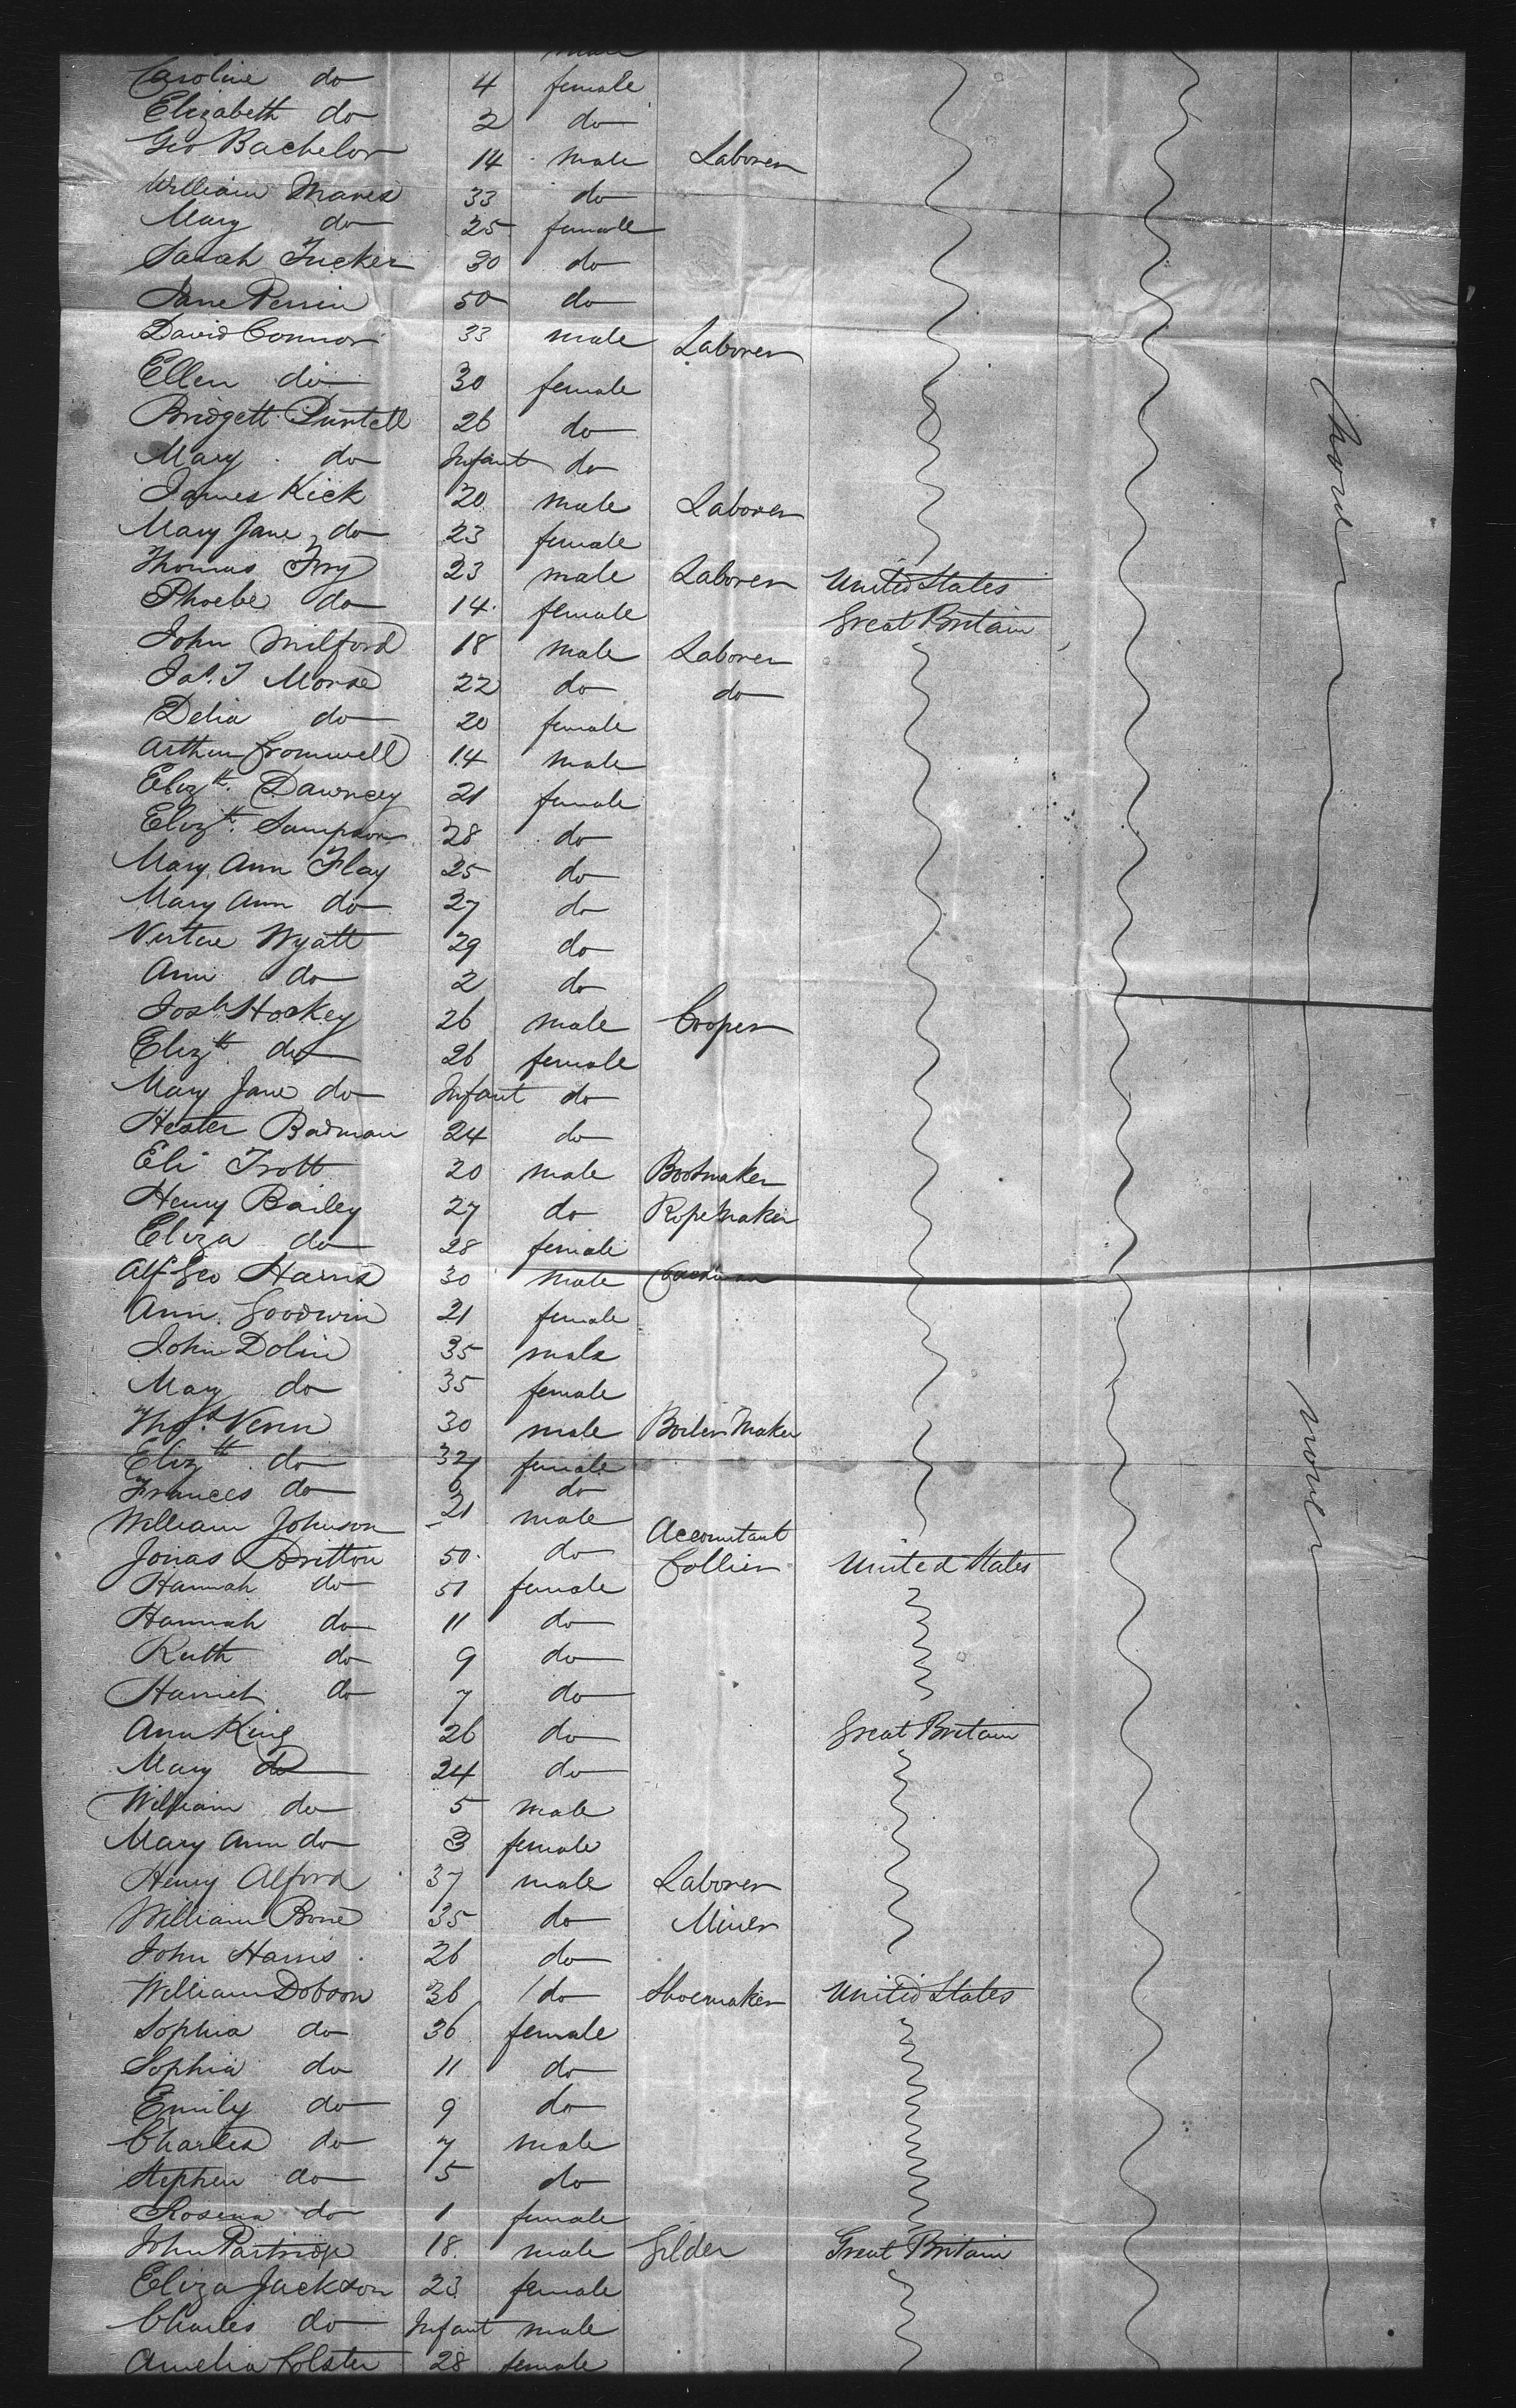 male
Caroline do 4 female
Elizabeth do 2 do
Geo Bachelor 14 male Laborer
William Mares 33 do
Mary do 25 female
Sarah Tucker 30 do
Jane Perrin 50 do
David Connor 33 male Laborer
Ellen do 30 female
Bridgett Purtell 26 do
Mary do Infant do
James Kick 20 male Laborer
Mary Jane do 23 female
Thomas Fry 23 male Laborer United States
Phoebe do 14 female Great Britain
John Milford 18 male Laborer
Jas. T Morse 22 do do
Delia do 20 female
Arthur Cromwell 14 male
Elizth. Dawncey 21 female
Elizth. Sampson 28 do
Mary Ann Flay 25 do
Mary Ann do 27 do
Virtue Wyatt 29 do
Ann do 2 do
Josh Hockey 26 male Cooper
Elizth do 26 female
Mary Jane do Infant do
Hester Badman 24 do
Eli Trott 20 male Bootmaker
Henry Bailey 27 do Ropemaker
Eliza do 28 female
Alf Geo Harris 30 male
Ann Goodwin 21 female
John Dolin 35 male
Mary do 35 female
Thos. Venn 30 male Boiler Maker
Elizth. do 32 female
Frances do do
William Johnson 21 male Accountant
Jonas Britton 50 do Collier United States
Hannah do 51 female
Hannah do 11 do
Ruth do 9 do
Harriet do 7 do
Ann King 26 do Great Britain
Mary do 24 do
William do 5 male
Mary Ann do 3 female
Henry Alford 37 male Laborer
William Bone 35 do Miner
John Harris 26 do
William Dobson 36 do Shoemaker United States
Sophia do 36 female
Sophia do 11 do
Emily do 9 do
Charles do 7 male
Stephen do 5 do
Rosena do 1 female
John Partridge 18 male Gilder Great Britain
Eliza Jackson 23 female
Charles do Infant male
Amelia Colster 28 female
none
none